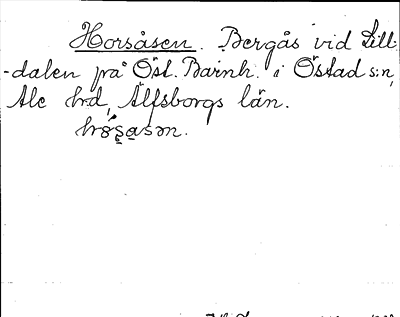 Horsåsen. Bergås vid Lill-
-dalen på Öst. Barnh. i Östad s:n,
Ale h:d, Älfsborgs län.